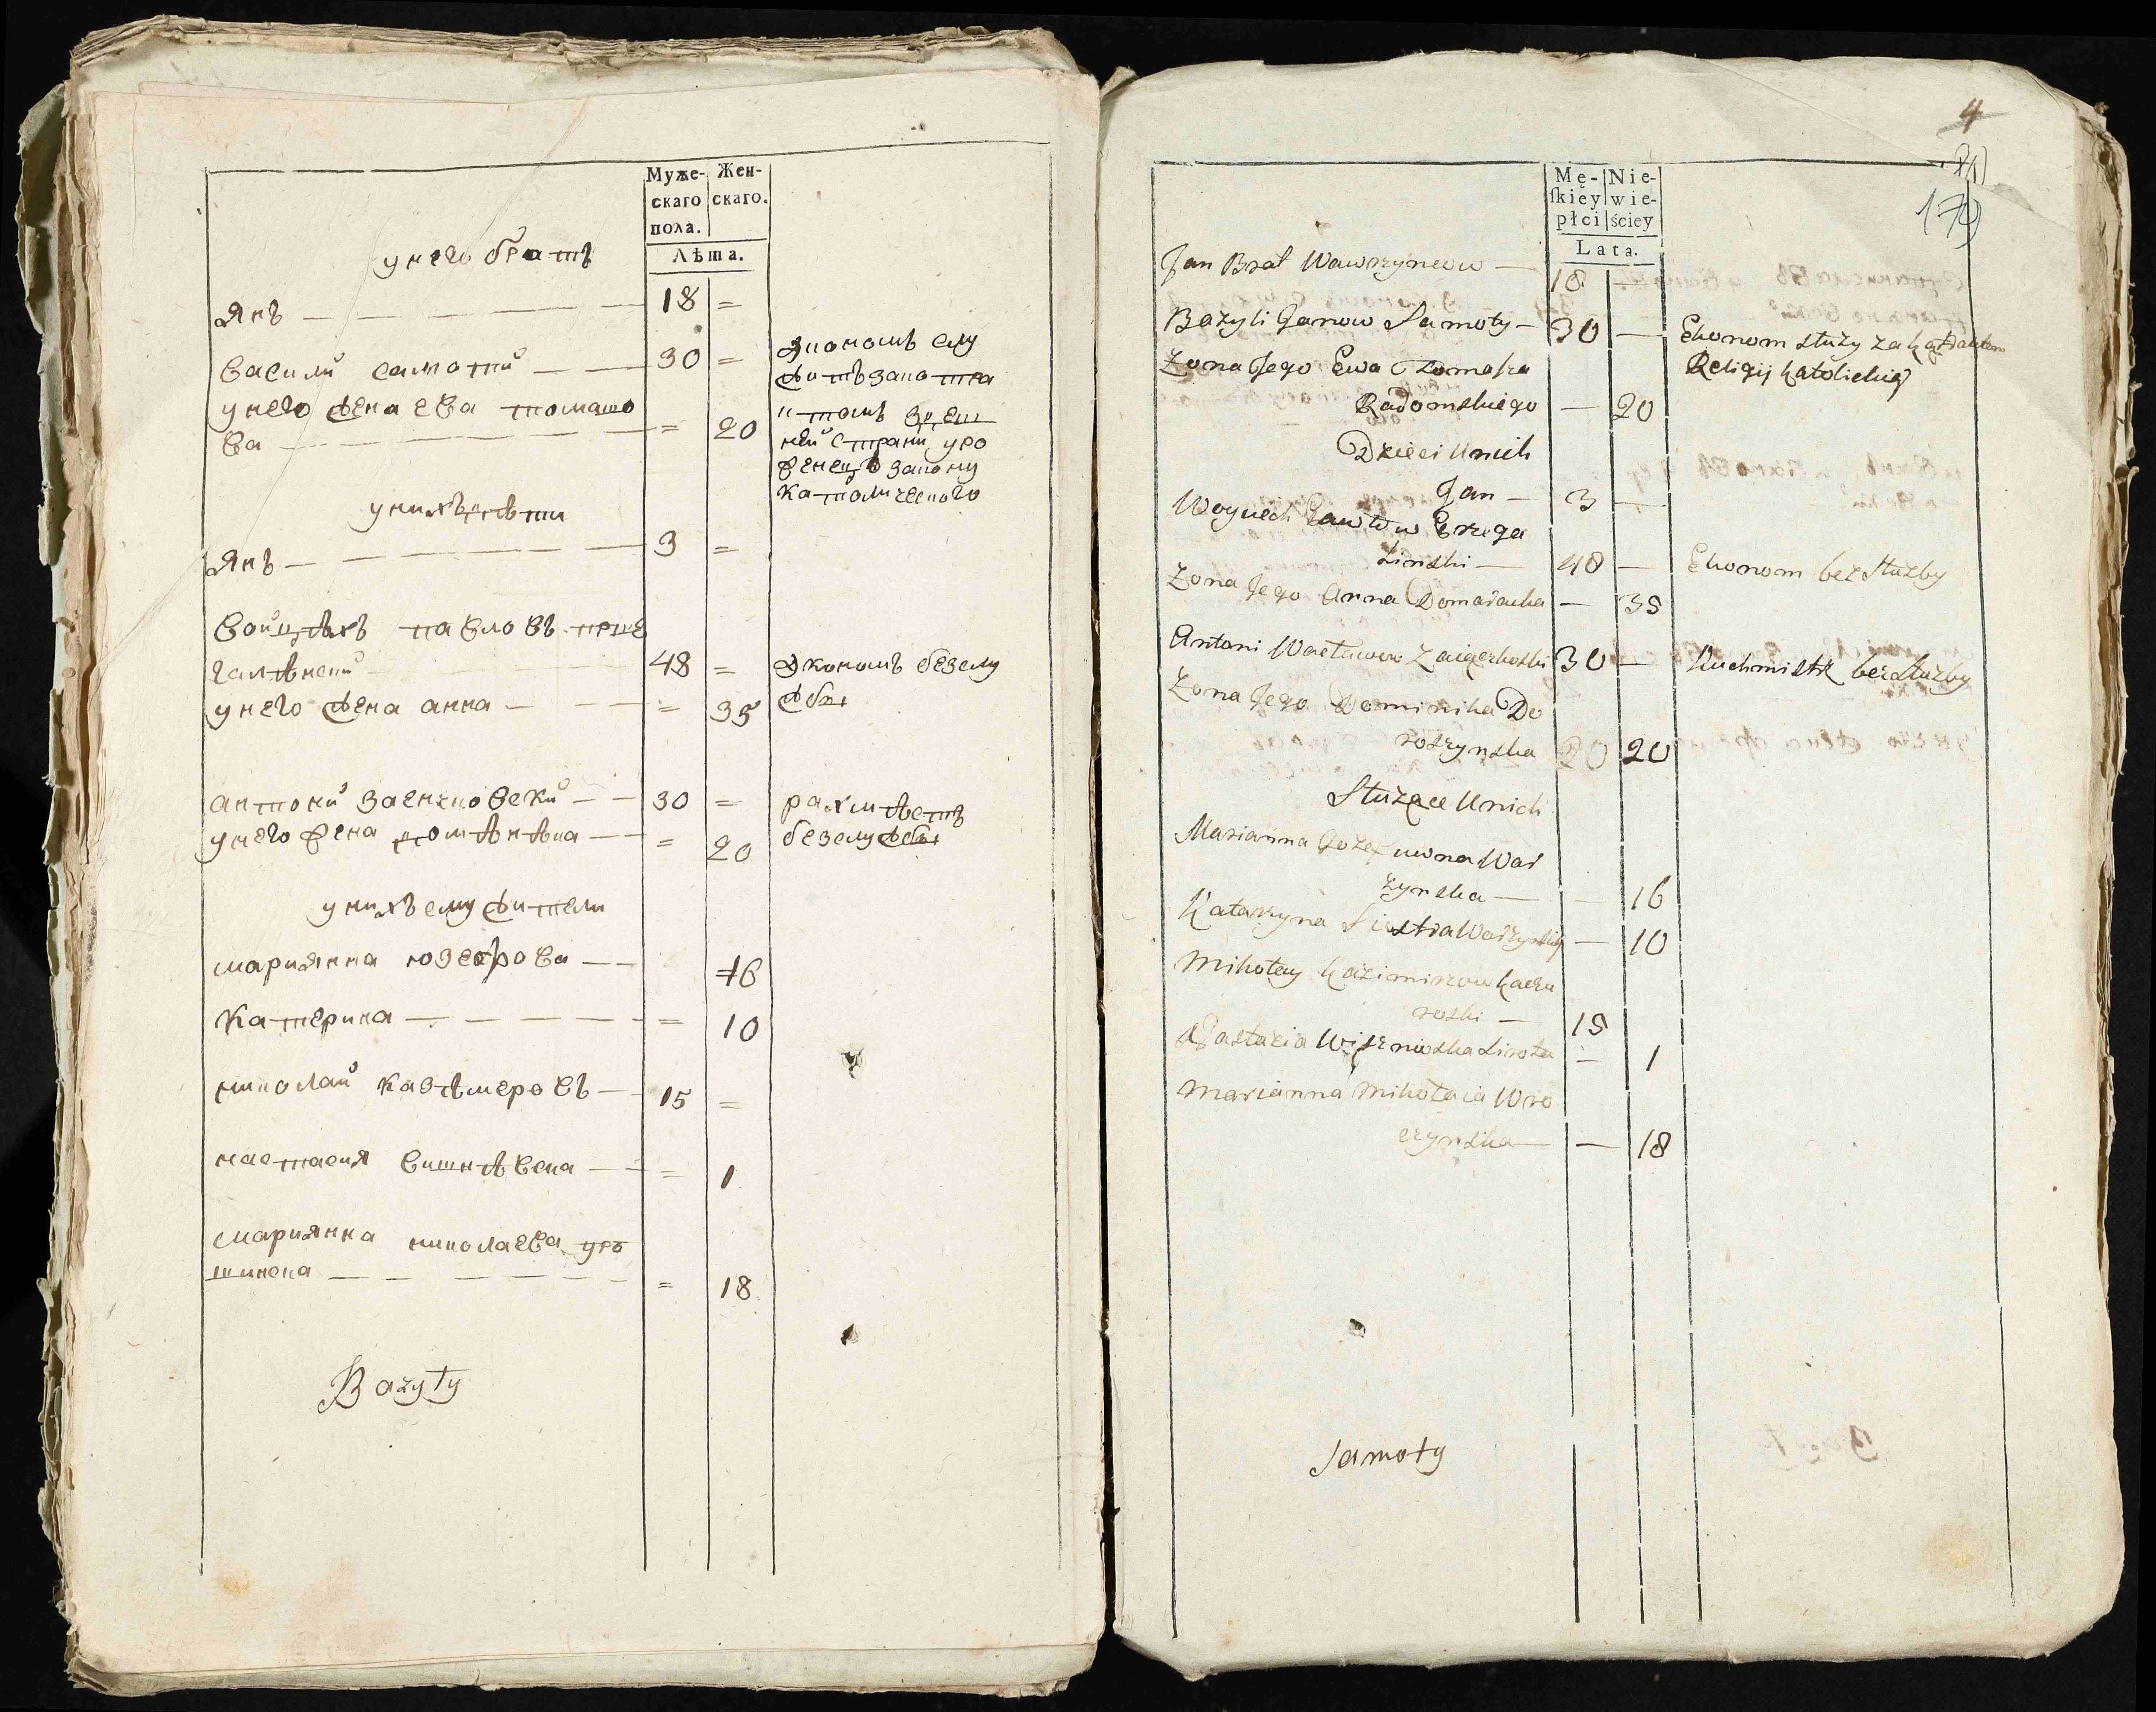 Муже-
скаго
пола.
Жен-
скаго.
Лѣта.
унего братъ
Янъ 18 =
василий самотий 30 = Экономъ слу
житъ законтра
унего жена ева томашо
ва = 20
ктомъ здеш
ней страни уро
женецъ закону
католического
унихъ дѣти
Янъ 3 =
войцѣхъ павловъ пше
галѣнски 48 = Экономъ безслу
жбы
унего жена анна = 35
антоний заенчковски 30 = кухмѣстъ
безслужбы
унего жена домѣнѣка = 20
унихъ служители
мариянна юзефова 16
Катерина = 10
николай казѣмеровъ 15 =
настасия вишнѣвска = 1
мариянна николаева уро
шинска = 18
Bazyły
4
Mę-
ſkiéy
płci
Nie-
wie-
ściey
Lata.
Jan Brat Wawrzyncow 18 —
Bazyli Janow Samoty 30 — Ekonom służy za kątraktem
Religij katolickię
Zona Jego Ewa Tomasza
Radomskiego — 20
Dzieci Unich
Jan 3 —
Woyciech Pawłow Przega
linski 48 — Ekonom bez służby
Zona Jego Anna Domaracka — 35
Antoni Wacławow Zaięczkoski 30 — Kuchmistrz bez służby
Zona Jego Dominika Do
roszynska 20 20
Służące Unich
Marianna Jozefuwna War
zynska — 16
Katarzyna Siostra Warzynskię — 10
Mikołay Kazimirzow Kaczu
roski 15
Nastazia Wisznioska Sirota — 1
Marianna Mikołaia Wro
czynska — 18
Samoty